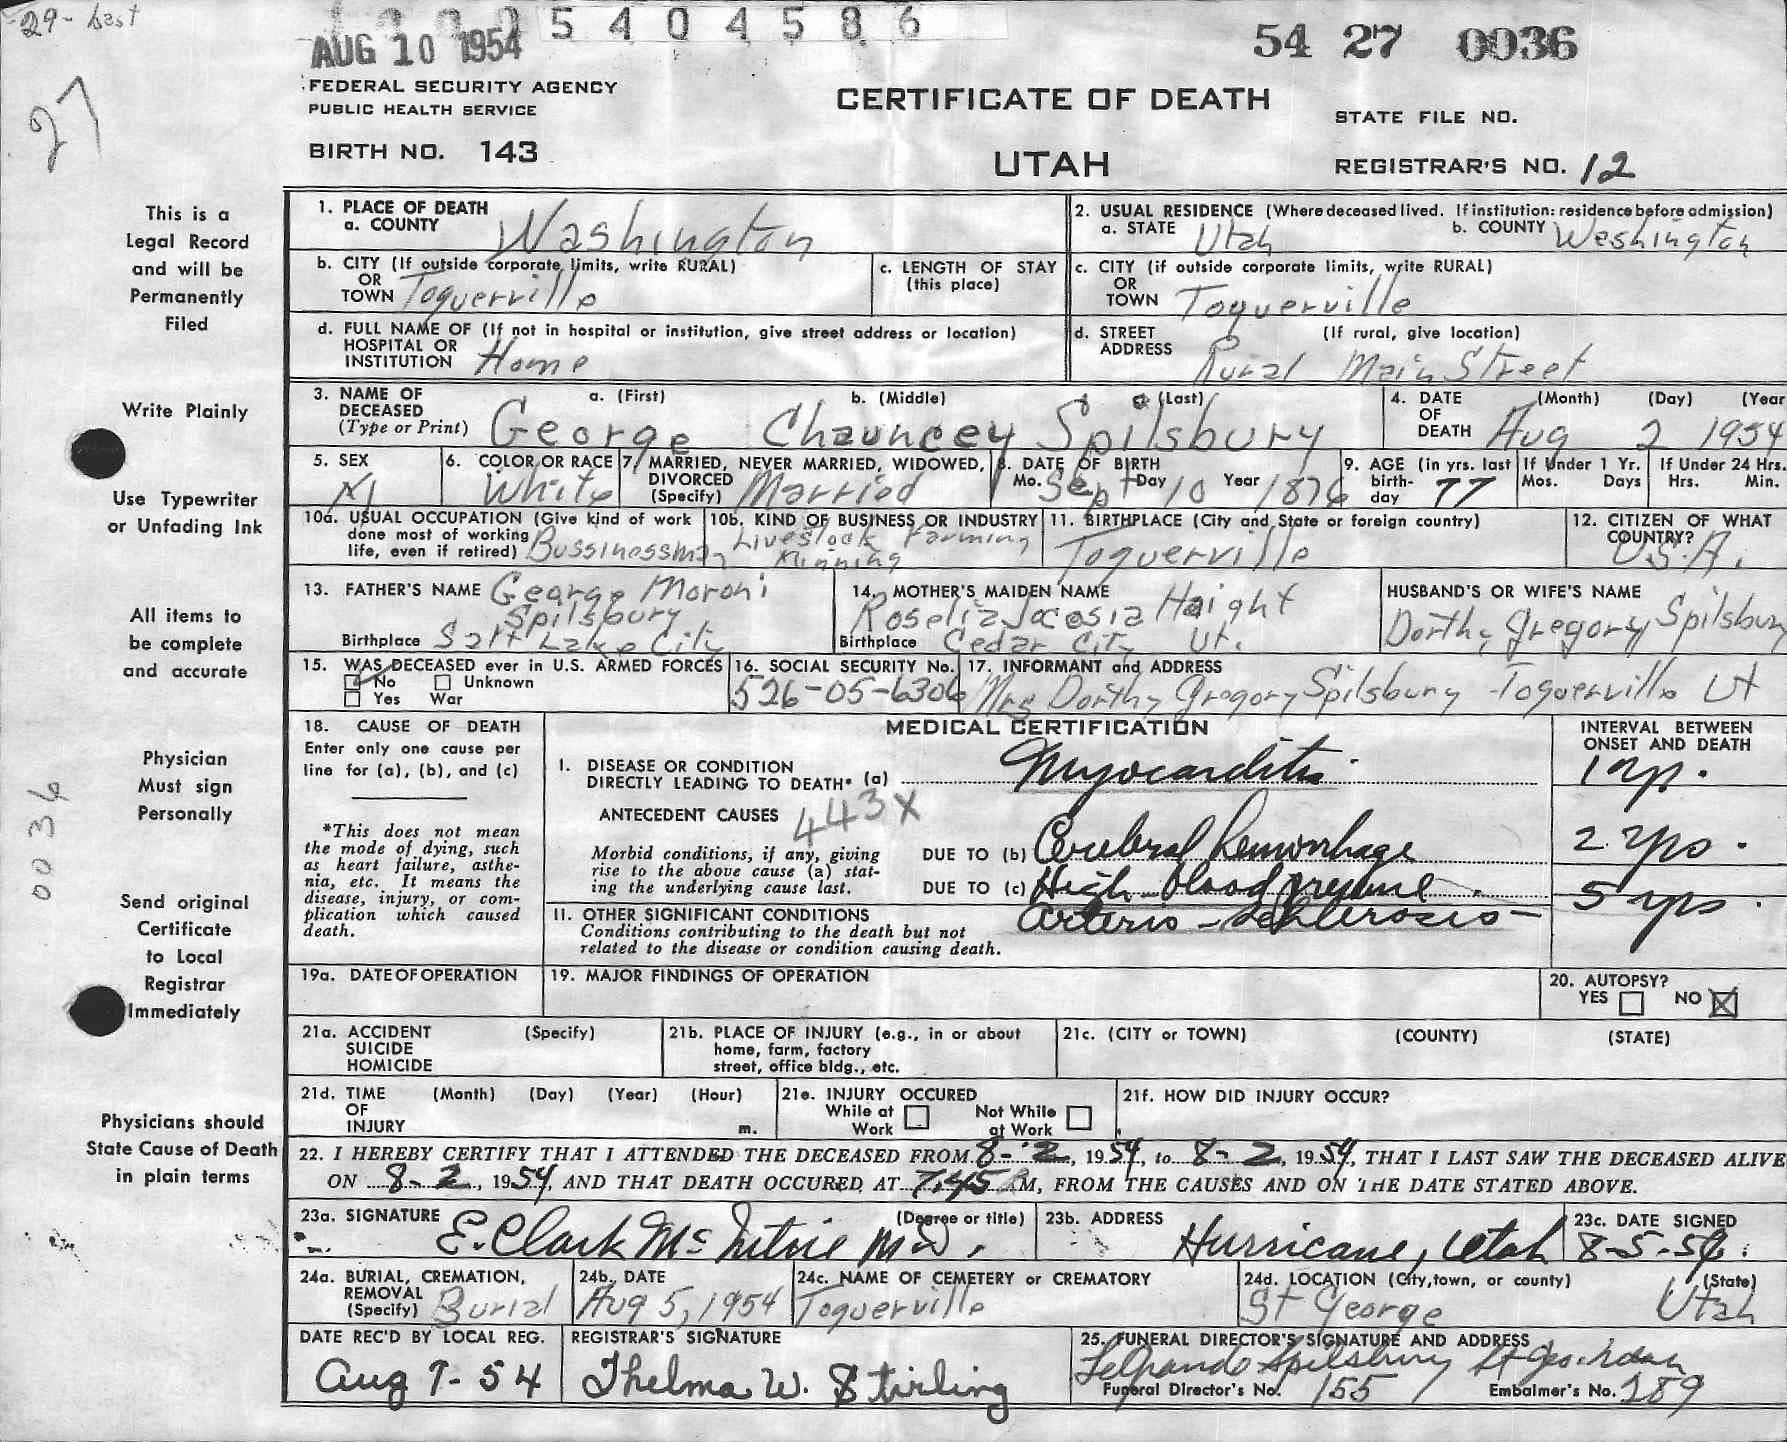 29- Last
5404586
AUG 10 1954
54 27 0036
27
FEDERAL SECURITY AGENCY
PUBLIC HEALTH SERVICE
CERTIFICATE OF DEATH
STATE FILE NO.
BIRTH NO. 143
UTAH
REGISTRAR'S NO. 12
This is a
Legal Record
and will be
Permanently
Filed
Write Plainly
Use Typewriter
or Unfading Ink
All items to
be complete
and accurate
Physician
Must sign
Personally
0036
Send original
Certificate
to Local
Registrar
Immediately
Physicians should
State Cause of Death
in plain terms
1. PLACE OF DEATH
a. COUNTY Washington
2. USUAL RESIDENCE (Where deceased lived. If institution: residence before admission)
a. STATE Utah b. COUNTY Washington
b. CITY (If outside corporate limits, write RURAL)
OR
TOWN Toquerville
c. LENGTH OF STAY
(this place)
c. CITY (if outside corporate limits, write RURAL)
OR
TOWN Toquerville
d. FULL NAME OF (If not in hospital or institution, give street address or location)
HOSPITAL OR
INSTITUTION Home
d. STREET (If rural, give location)
ADDRESS Rural Main Street
3. NAME OF a. (First) b. (Middle) c. (Last)
DECEASED
(Type or Print) George Chauncey Spilsbury
4. DATE (Month) (Day) (Year
OF
DEATH Aug 2 1954
5. SEX
M
6. COLOR OR RACE
White
7. MARRIED, NEVER MARRIED, WIDOWED,
DIVORCED
(Specify) Married
8. DATE OF BIRTH
Mo. Sept Day 10 Year 1876
9. AGE (in yrs. last
birth-
day 77
If Under 1 Yr.
Mos. Days
If Under 24 Hrs.
Hrs. Min.
10a. USUAL OCCUPATION (Give kind of work
done most of working
life, even if retired) Bussinessman
10b. KIND OF BUSINESS OR INDUSTRY
Livestock Farming
Minning
11. BIRTHPLACE (City and State or foreign country)
Toquerville
12. CITIZEN OF WHAT
COUNTRY?
U.S.A.
13. FATHER'S NAME George Moroni
Spilsbury
Birthplace Salt Lake City
14. MOTHER'S MAIDEN NAME
Roselia Haight
Birthplace Cedar City Ut.
HUSBAND'S OR WIFE'S NAME
Dorthy Gregory Spilsbury
15. WAS DECEASED ever in U.S. ARMED FORCES
No Unknown
Yes War
16. SOCIAL SECURITY No.
526-05-6306
17. INFORMANT and ADDRESS
Mrs Dorthy Gregory Spilsbury - Toquerville Ut
18. CAUSE OF DEATH
Enter only one cause per
line for (a), (b), and (c)
*This does not mean
the mode of dying, such
as heart failure, asthe-
nia, etc. It means the
disease, injury, or com-
plication which caused
death.
MEDICAL CERTIFICATION
INTERVAL BETWEEN
ONSET AND DEATH
I. DISEASE OR CONDITION
DIRECTLY LEADING TO DEATH* (a) Myocarditis 1 yr.
ANTECEDENT CAUSES 443X
Morbid conditions, if any, giving
rise to the above cause (a) stat-
ing the underlying cause last.
DUE TO (b) Cerebral hemorrhage 2 yrs.
DUE TO (c) High blood pressure 5 yrs.
II. OTHER SIGNIFICANT CONDITIONS Arterio-schlerosis-
Conditions contributing to the death but not
related to the disease or condition causing death.
19a. DATE OF OPERATION
19. MAJOR FINDINGS OF OPERATION
20. AUTOPSY?
YES NO X
21a. ACCIDENT (Specify)
SUICIDE
HOMICIDE
21b. PLACE OF INJURY (e.g., in or about
home, farm, factory
street, office bldg., etc.
21c. (CITY or TOWN) (COUNTY) (STATE)
21d. TIME (Month) (Day) (Year) (Hour)
OF
INJURY m.
21e. INJURY OCCURED
While at Work Not While at Work
21f. HOW DID INJURY OCCUR?
22. I HEREBY CERTIFY THAT I ATTENDED THE DECEASED FROM 8-2, 1954, to 8-2, 1954, THAT I LAST SAW THE DECEASED ALIVE
ON 8-2, 1954, AND THAT DEATH OCCURED, AT 7:45 M, FROM THE CAUSES AND ON THE DATE STATED ABOVE.
23a. SIGNATURE (Degree or title)
E. Clark McIntire M.D.
23b. ADDRESS
Hurricane, Utah
23c. DATE SIGNED
8-5-54.
24a. BURIAL, CREMATION,
REMOVAL
(Specify) Burial
24b. DATE
Aug 5, 1954
24c. NAME OF CEMETERY or CREMATORY
Toquerville
24d. LOCATION (City, town, or county) (State)
St George Utah
DATE REC'D BY LOCAL REG.
Aug 7-54
REGISTRAR'S SIGNATURE
Thelma W. Stirling
25. FUNERAL DIRECTOR'S SIGNATURE AND ADDRESS
Spilsbury
Funeral Director's No. 155 Embalmer's No. 289